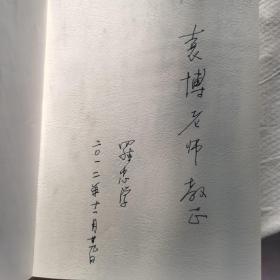 袁博老师教正
罗忠学
二〇一二年十一月廿九日